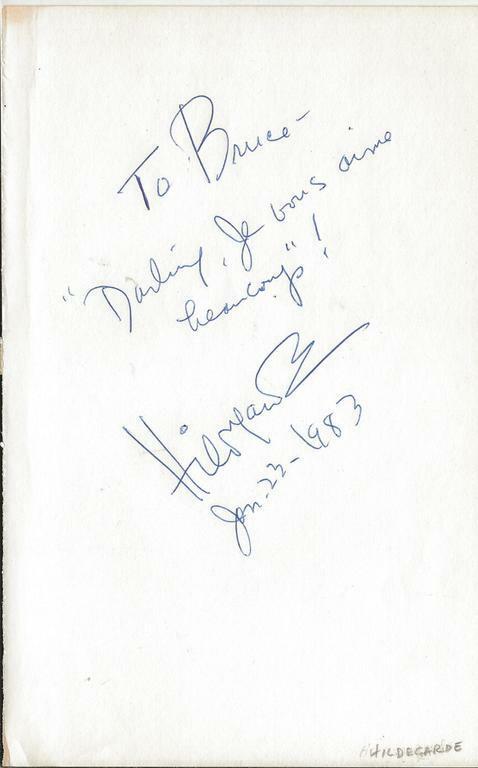 To Bruce-
"Darling, Je vous aime
beaucoup"!
Hildegarde
Jan. 23-1983
HILDEGARDE